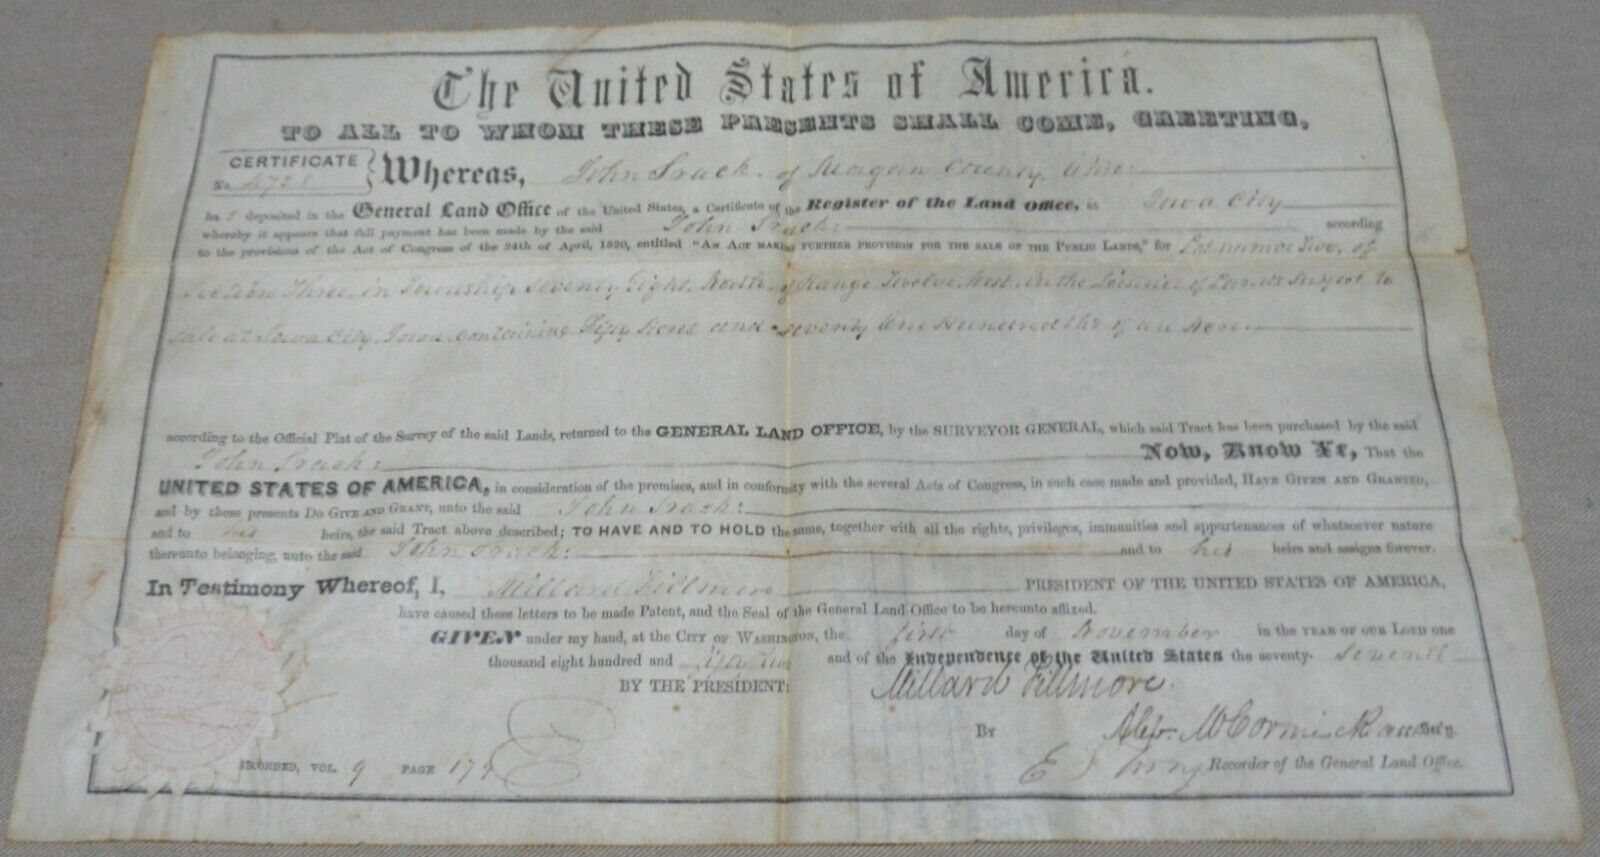 The United States of America.
TO ALL TO WHOM THESE PRESENTS SHALL COME, GREETING,
CERTIFICATE
No. 4728
Whereas, John Srack of Morgan County, Ohio:
ha s deposited in the General Land Office of the United States, a Certificate of the Register of the Land Office, at Iowa City
whereby it appears that full payment has been made by the said John Srack: according
to the provisions of the Act of Congress of the 24th of April, 1820, entitled "AN ACT MAKING FURTHER PROVISION FOR THE SALE OF THE PUBLIC LANDS," for Lot number Two, of
Section Three, in Township Seventy Eight, North of Range Twelve West in the District of Lands Subject to
sale at Iowa City, Iowa containing Fifty Acres and seventy One Hundredths of an Acre.
according to the Official Plat of the Survey of the said Lands, returned to the GENERAL LAND OFFICE, by the SURVEYOR GENERAL, which said Tract has been purchased by the said
John Srack: NOW, KNOW YE, That the
UNITED STATES OF AMERICA, in consideration of the premises, and in conformity with the several Acts of Congress, in such case made and provided, HAVE GIVEN AND GRANTED,
and by these presents DO GIVE AND GRANT, unto the said John Srack:
and to his heirs, the said Tract above described; TO HAVE AND TO HOLD the same, together with all the rights, privileges, immunities and appurtenances of whatsoever nature
thereunto belonging, unto the said John Srack: and to his heirs and assigns forever.
In Testimony Whereof, I, Millard Fillmore PRESIDENT OF THE UNITED STATES OF AMERICA,
have caused these letters to be made Patent, and the Seal of the General Land Office to be hereunto affixed.
GIVEN under my hand, at the CITY OF WASHINGTON, the first day of November in the YEAR OF OUR LORD one
thousand eight hundred and fifty two and of the Independence of the United States the seventy-seventh
BY THE PRESIDENT: Millard Fillmore
By Alex. McCormick Sec'y.
RECORDED, VOL. 9 PAGE 179 Recorder of the General Land Office.